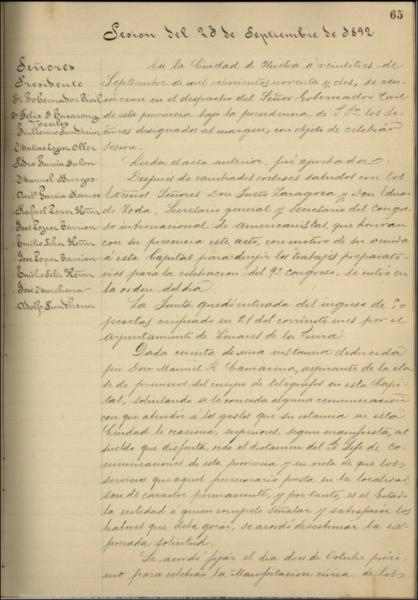 65
Sesion del 23 de Septiembre de 1892
Señores
Presidente
Sr Gobernador Civil
D. Felix G. Cazorro
Guillermo Sundheim
Matias Lopez Oller
Pedro Garcia
Manuel Burgos
Antº Garcia Ramos
Rafael Lopez Hdez
Jose Lopez
Emilio Hdez
Jose Lopez
Emilio Hdez
Jose Marchena
Adolfo Sundheim
En la Ciudad de Huelva á veintitres de
Septiembre de mil ochocientos noventa y dos, se reu-
nieron en el despacho del Señor Gobernador Civil
de esta provincia bajo la presidencia de S. Sª, los Se-
ñores designados al margen, con objeto de celebrar
sesion.
Leida el acta anterior, fué aprobada.
Despues de cambiados corteses saludos con los
Señores Don Justo Zaragoza y Don
Secretario general y Secretario del Congre-
so internacional de americanistas que honran
con su presencia este acto, con motivo de su venida
á esta Capital para dirigir los trabajos preparato-
rios para la celebracion del 9º congreso, se entró en
la orden del dia.
La Junta quedó enterada del ingreso de 30
pesetas verificado en 21 del corriente mes por el
Ayuntamiento de Linares de la Sierra.
Dada cuenta de una instancia deducida
por Don Manuel R. Camarma, aspirante de la cla-
se de primeros del cuerpo de telégrafos en esta Capi-
tal, solicitando se le conceda alguna remuneracion
con que atender á los gastos que su estancia en esta
Ciudad le ocasiona, superiores, segun manifiesta, al
sueldo que disfruta, oido el dictamen del Sr Jefe de Co-
municaciones de esta provincia y en vista de que los
servicios que aquel funcionario presta en la localidad
son de caracter permanente, y por tanto, es el Estado
la entidad a quien compete señalar y satisfacer los
haberes que deba gozar, se acordó desestimar la ex-
presada solicitud.
Se acordó fijar el dia doce de Octubre próxi-
mo para celebrar la Manifestacion cívica de los